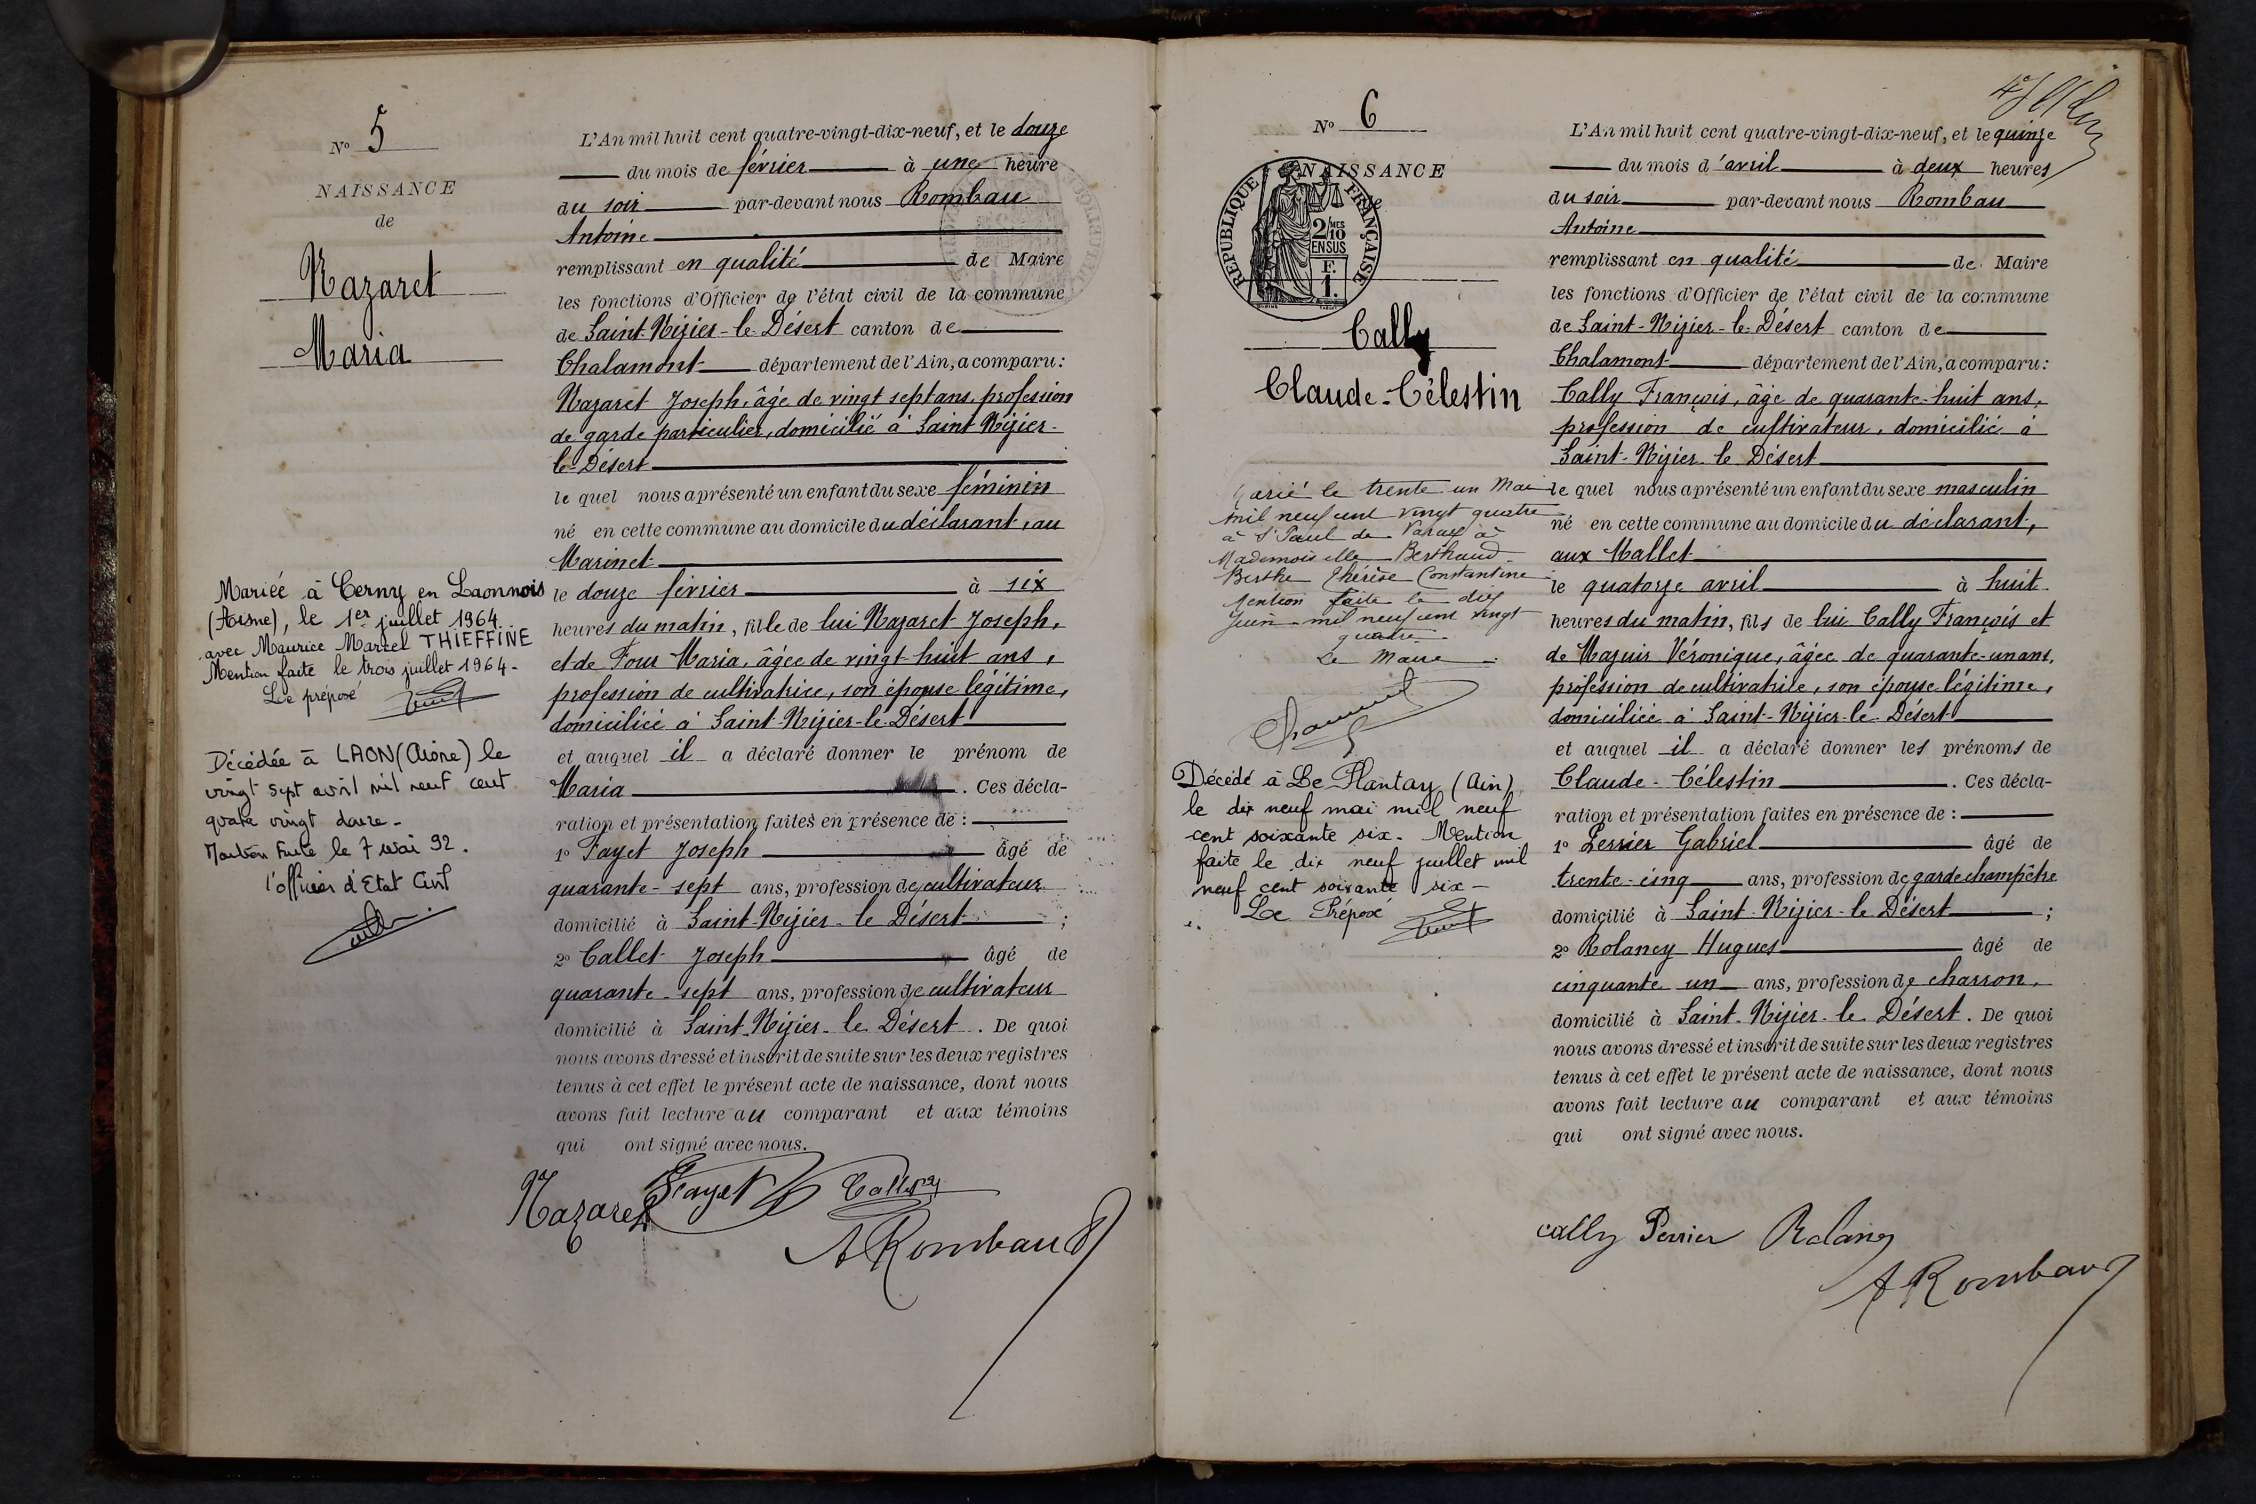 N° 5
NAISSANCE
de
Nazaret
Maria
Mariée à Cerny en Laonnois
(Aisne), le 1er juillet 1964
avec Maurice Marcel THIEFFINE
Mention faite le trois juillet 1964-
Le préposé
Décédée à LAON (Aisne) le
vingt sept avril mil neuf cent
quatre vingt douze-
Mention faite le 7 mai 92.
l'officier d'Etat Civil
L'An mil huit cent quatre-vingt-dix-neuf, et le douze
du mois de février à une heure
du soir par-devant nous Rombau
Antoine
remplissant en qualité de Maire
les fonctions d'Officier de l'état civil de la commune
de Saint-Nizier-le-Désert canton de
Chalamont département de l'Ain, a comparu :
Nazaret Joseph, âgé de vingt sept ans, profession
de garde particulier, domicilié à Saint Nizier-
le-Désert
le quel nous a présenté un enfant du sexe féminin
né en cette commune au domicile du déclarant, au
Marinet
le douze février à six
heures du matin, fille de lui Nazaret Joseph,
et de Four Maria, âgée de vingt-huit ans,
profession de cultivatrice, son épouse légitime,
domiciliée à Saint-Nizier-le-Désert
et auquel il a déclaré donner le prénom de
Maria . Ces décla-
ration et présentation faites en présence de :
1° Fayet Joseph âgé de
quarante-sept ans, profession de cultivateur
domicilié à Saint-Nizier-le Désert ;
2° Callet Joseph âgé de
quarante-sept ans, profession de cultivateur
domicilié à Saint-Nizier-le Désert. De quoi
nous avons dressé et inscrit de suite sur les deux registres
tenus à cet effet le présent acte de naissance, dont nous
avons fait lecture au comparant et aux témoins
qui ont signé avec nous.
Nazaret Fayet Callet
A Rombau
N° 6
NAISSANCE
de
RÉPUBLIQUE FRANÇAISE
2/10 MES
EN SUS
F.
1.
Cally
Claude-Célestin
Marié le trente un Mai
mil neuf cent vingt quatre
à St Paul de Varax à
Mademoiselle Berthaud
Berthe Thérèse Constantine
Mention faite le dix
Juin mil neuf cent vingt
quatre
Le Maire
Décédé à Le Plantay (Ain)
le dix neuf mai mil neuf
cent soixante six. Mention
faite le dix neuf juillet mil
neuf cent soixante six-
Le Préposé
L'An mil huit cent quatre-vingt-dix-neuf, et le quinze
du mois d'avril à deux heures
du soir par-devant nous Rombau
Antoine
remplissant en qualité de Maire
les fonctions d'Officier de l'état civil de la commune
de Saint-Nizier-le-Désert canton de
Chalamont département de l'Ain, a comparu :
Cally François, âgé de quarante-huit ans,
profession de cultivateur, domicilié à
Saint-Nizier-le Désert
le quel nous a présenté un enfant du sexe masculin
né en cette commune au domicile du déclarant,
aux Mallet
le quatorze avril à huit
heures du matin, fils de lui Cally François et
de Mazuir Véronique, âgée de quarante-un ans,
profession de cultivatrice, son épouse légitime,
domiciliée à Saint-Nizier-le-Désert
et auquel il a déclaré donner les prénoms de
Claude-Célestin . Ces décla-
ration et présentation faites en présence de :
1° Perrier Gabriel âgé de
trente-cinq ans, profession de garde champêtre
domicilié à Saint-Nizier-le Désert ;
2° Rolancy Hugues âgé de
cinquante un ans, profession de charron,
domicilié à Saint-Nizier-le Désert. De quoi
nous avons dressé et inscrit de suite sur les deux registres
tenus à cet effet le présent acte de naissance, dont nous
avons fait lecture au comparant et aux témoins
qui ont signé avec nous.
cally Perrier
A Rombau